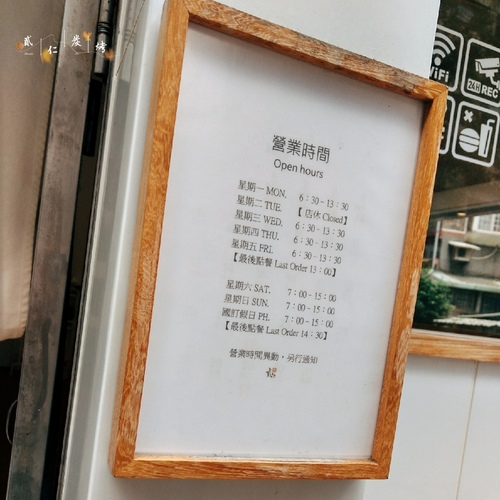 貳仁炭烤
WiFi
24H REC
營業時間
Open hours
星期一 MON. 6：30 - 13：30
星期二 TUE. 【店休 Closed】
星期三 WED. 6：30 - 13：30
星期四 THU. 6：30 - 13：30
星期五 FRI. 6：30 - 13：30
【最後點餐 Last Order 13：00】
星期六 SAT. 7：00 - 15：00
星期日 SUN. 7：00 - 15：00
國訂假日 PH. 7：00 - 15：00
【最後點餐 Last Order 14：30】
營業時間異動，另行通知